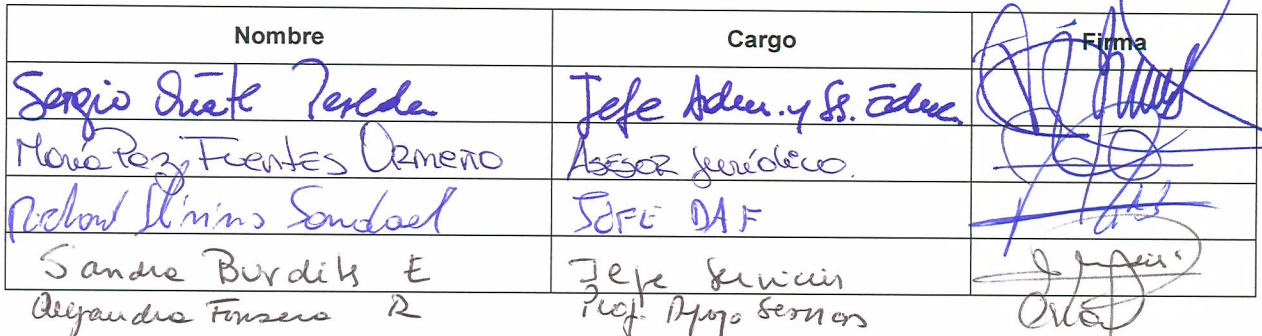 Nombre Cargo Firma
Sergio Oñate Pereda Jefe Adm. y Ss. Educ.
María Paz Fuentes Ormeño Asesor Jurídico.
Richard Sandoval JEFE DAF
Sandra Burdils E Jefe Servicios
Alejandra Fonseca R Prof. Apoyo Servicios